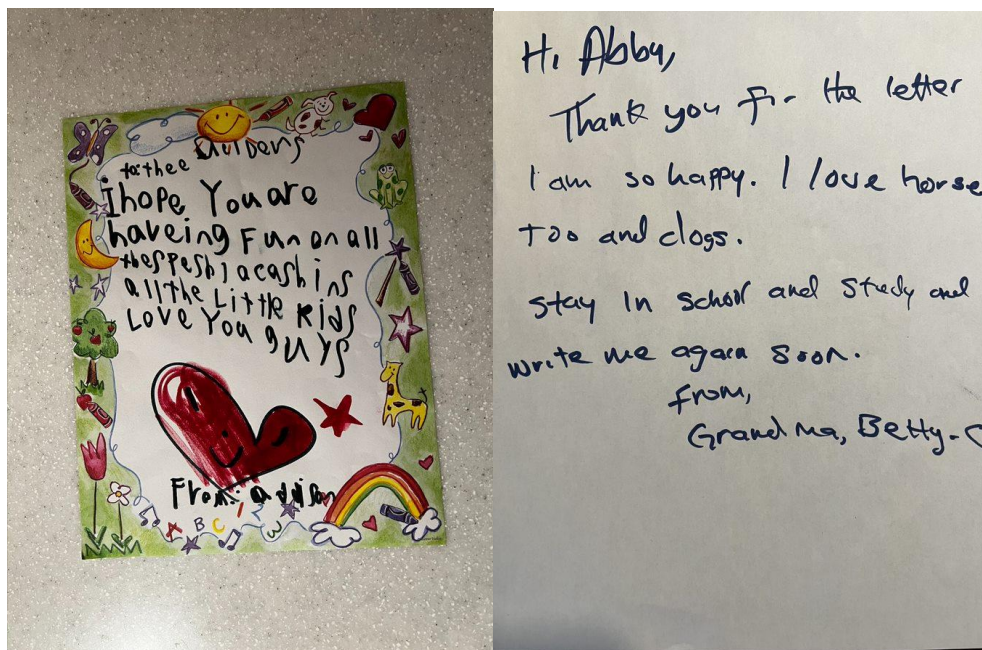 to thee
i hope You are
haveing Fun on all
the speshl acashins
all the Little Kids
Love You guys
From: addison
A B C 1 2 3
Hi Abby,
Thank you for the letter
I am so happy. I love horse
too and dogs.
stay in school and study and
write me again soon.
from,
Grandma, Betty.